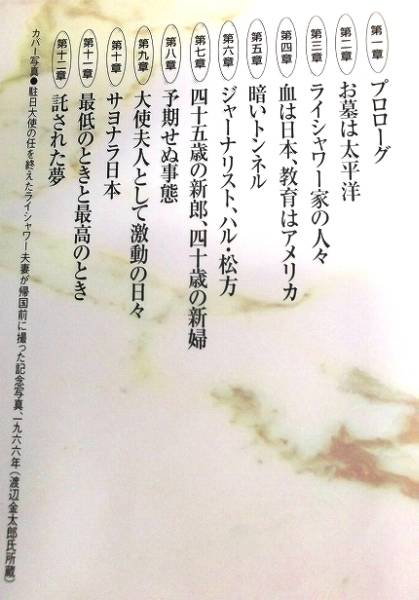 第一章 プロローグ
第二章 お墓は太平洋
第三章 ライシャワー家の人々
第四章 血は日本、教育はアメリカ
第五章 暗いトンネル
第六章 ジャーナリスト、ハル・松方
第七章 四十五歳の新郎、四十歳の新婦
第八章 予期せぬ事態
第九章 大使夫人として激動の日々
第十章 サヨナラ日本
第十一章 最低のときと最高のとき
第十二章 託された夢
カバー写真●駐日大使の任を終えたライシャワー夫妻が帰国前に撮った記念写真、一九六六年(渡辺金太郎氏所蔵)